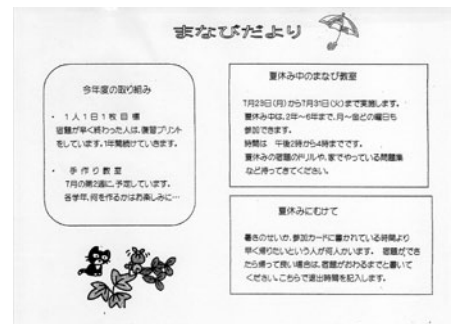 まなびだより
今年度の取り組み
・ 1人1日1枚目標
宿題が早く終わった人は、復習プリント
をしています。1年間続けていきます。
・ 手作り教室
7月の第2週に、予定しています。
各学年、何を作るかはお楽しみに…
夏休み中のまなび教室
7月23日(月)から7月31日(火)まで実施します。
夏休み中は、2年～6年まで、月～金どの曜日も
参加できます。
時間は 午後2時から4時までです。
夏休みの宿題のドリルや、家でやっている問題集
など持ってきてください。
夏休みにむけて
暑さのせいか、参加カードに書かれている時間より
早く帰りたいという人が何人かいます。 宿題ができ
たら帰って良い場合は、宿題がおわるまでと書いて
ください。こちらで退出時間を記入します。